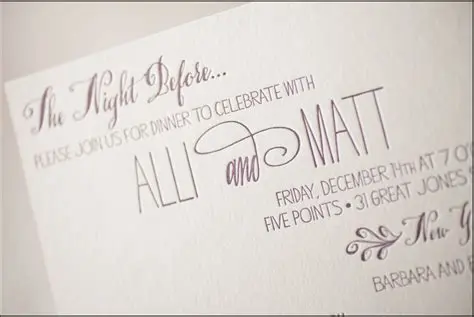 The Night Before...
PLEASE JOIN US FOR DINNER TO CELEBRATE WITH
ALLI and MATT
FRIDAY, DECEMBER 14TH AT 7 O'
FIVE POINTS • 31 GREAT JONES
New
BARBARA AND